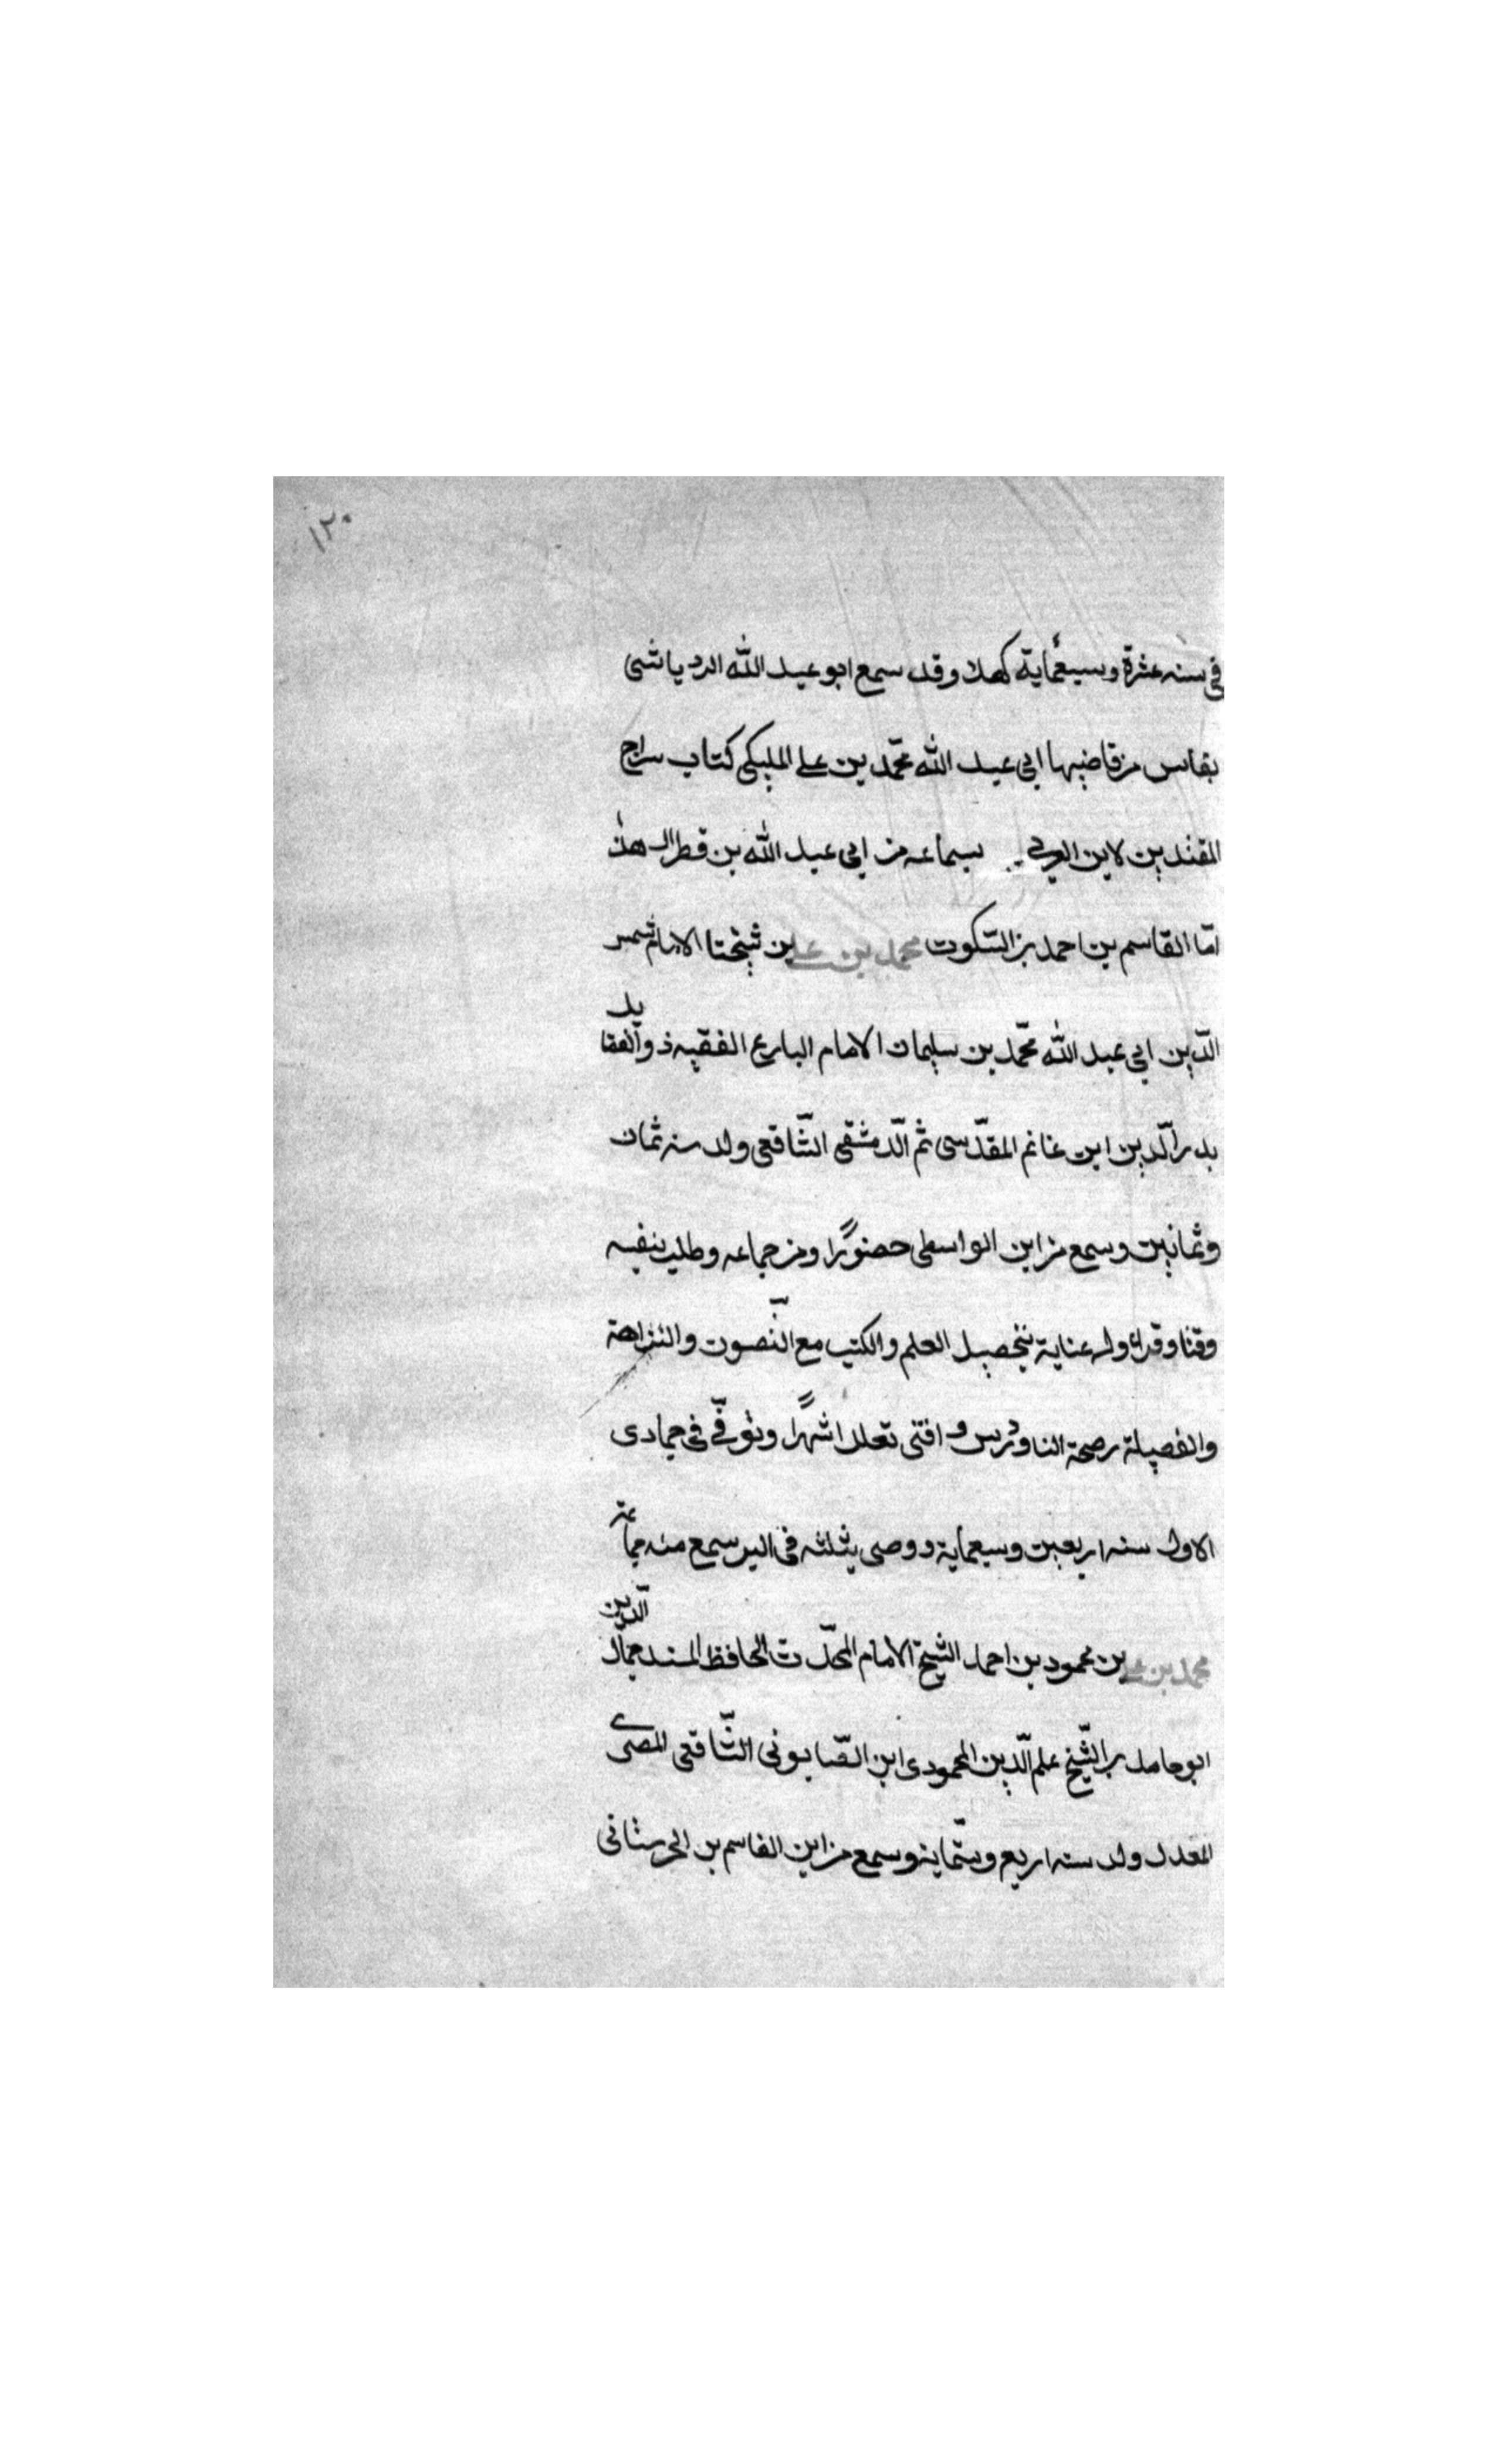 ١٢٠
في سنه عشرة وسبعماية كهلا وقد سمع ابو عبد الله الردياشى
بفاس من قاضيها ابي عبد الله محمد بن علي المليكى كتاب سراج
المقتدين لابن العربي بسماعه من ابي عبد الله بن قطرال هذا
امّا القاسم بن احمد بن السّكوت محمد بن علي بن شيخنا الامام شمس
الدّين ابي عبد الله محمّد بن سليمان الامام البارع الفقيه ذو الفقايل
بدر الدّين ابن غانم المقدّسى ثم الدّمشقى الشّافعى ولد سنه ثمان
وثمانين وسمع من ابن الواسطى حضورًا ومن جماعه وطلب بنفسه
وقتا وقراء وله عناية بتحصيل العلم والكتب مع التّصون والنزاهة
والفصيلة رصحة النا ودرس و افتى تعلل اشهرًا وتوفّى فى جمادى
الاول سنه اربعين وسبعماية دوصى بثلثه فى البر سمع منه جماعة
محمد بن علي بن محمود بن احمد الشيخ الامام المحدّث الحافظ المسند جمال الدّين
ابو حامد بن الشّيخ علم الدّين المحمودى ابن الصّابونى الشّافعى المصرى
المعدل ولد سنه اربع وستّماية وسمع من ابن القاسم بن الحرستانى